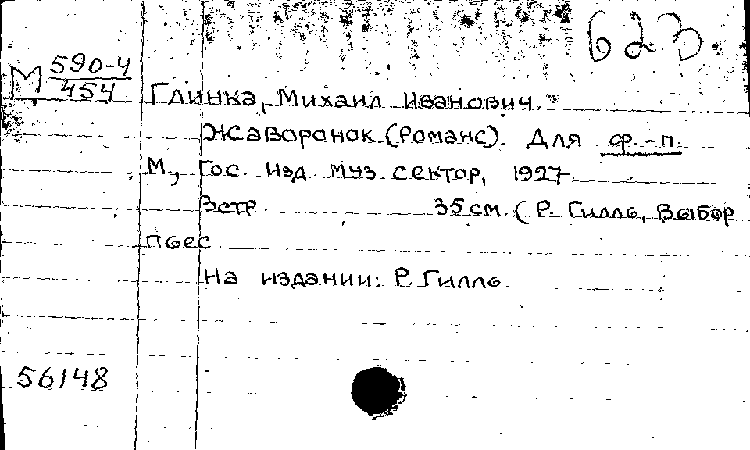 623
М 590-4
454
Глинка, Михаил Иванович.
Жаворонок (Романс). Для ф.-п.
М., Гос. изд. муз. сектор, 1927
3 стр. 35 см. (Р. Гилле, Выбор
пьес
На издании: Р. Гилле.
56148